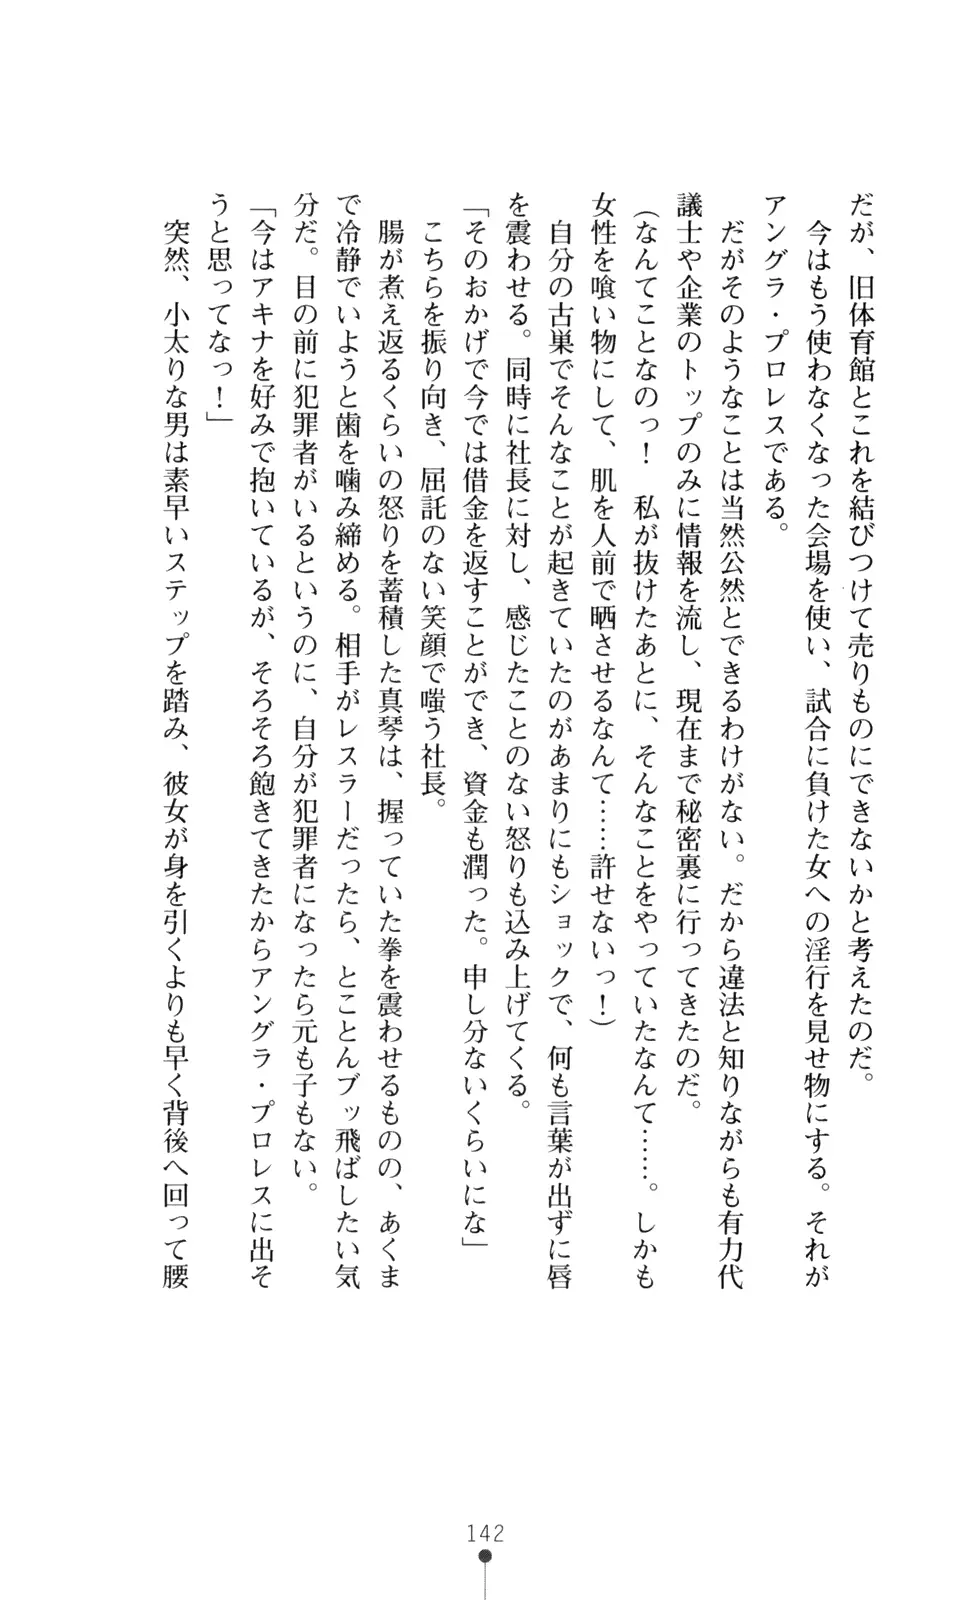 だが、旧体育館とこれを結びつけて売りものにできないかと考えたのだ。
　今はもう使わなくなった会場を使い、試合に負けた女への淫行を見せ物にする。それが
アングラ・プロレスである。
　だがそのようなことは当然公然とできるわけがない。だから違法と知りながらも有力代
議士や企業のトップのみに情報を流し、現在まで秘密裏に行ってきたのだ。
（なんてことなのっ！　私が抜けたあとに、そんなことをやっていたなんて……。しかも
女性を喰い物にして、肌を人前で晒させるなんて……許せないっ！）
　自分の古巣でそんなことが起きていたのがあまりにもショックで、何も言葉が出ずに唇
を震わせる。同時に社長に対し、感じたことのない怒りも込み上げてくる。
「そのおかげで今では借金を返すことができ、資金も潤った。申し分ないくらいにな」
　こちらを振り向き、屈託のない笑顔で嗤う社長。
　腸が煮え返るくらいの怒りを蓄積した真琴は、握っていた拳を震わせるものの、あくま
で冷静でいようと歯を噛み締める。相手がレスラーだったら、とことんブッ飛ばしたい気
分だ。目の前に犯罪者がいるというのに、自分が犯罪者になったら元も子もない。
「今はアキナを好みで抱いているが、そろそろ飽きてきたからアングラ・プロレスに出そ
うと思ってなっ！」
　突然、小太りな男は素早いステップを踏み、彼女が身を引くよりも早く背後へ回って腰
142